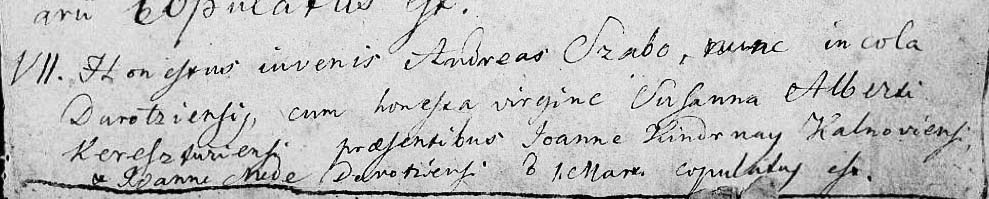 arii copulatus est.
VII. Honestus iuvenis Andreas Szabo, nunc incola
Darotziensis, cum honesta virgine Susanna Alberti
Kereszturiensi præsentibus Joanne Kindrnay Kalnoviensi,
& Joanne Darotziensi D 1. Mart. copulatus est.